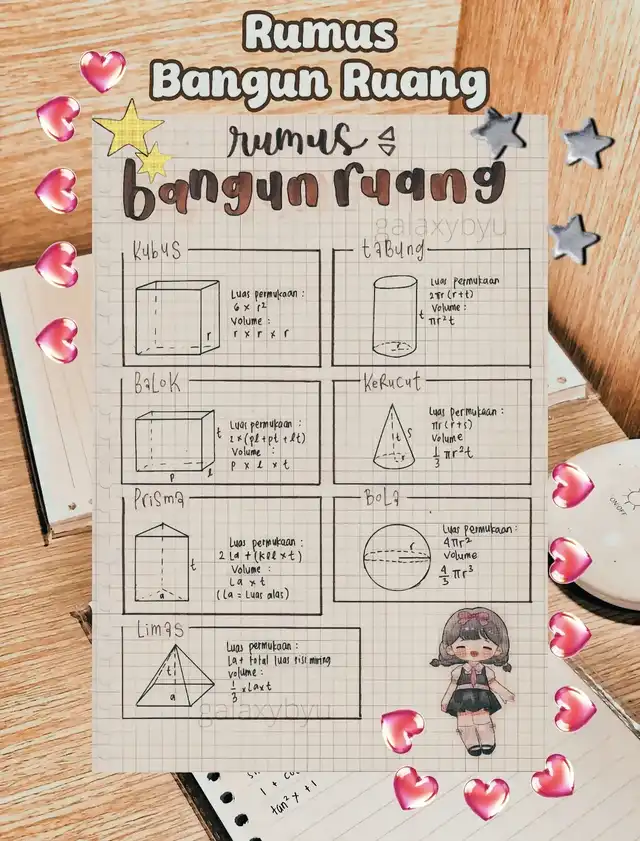 Rumus
Bangun Ruang
rumus
bangun ruang
galaxybyu
Kubus
Luas permukaan :
6 × r²
Volume :
r × r × r
r
Tabung
Luas permukaan
2πr (r+t)
Volume :
πr²t
t
r
Balok
Luas permukaan :
2×(pl+pt +lt)
Volume :
p × l × t
t
p
l
Kerucut
Luas permukaan :
πr(r+s)
Volume
1/3 πr²t
t
s
r
Prisma
Luas permukaan :
2 La + (kll × t)
Volume :
La × t
(La = Luas alas)
t
a
Bola
Luas permukaan :
4πr²
Volume
4/3 πr³
r
Limas
Luas permukaan :
La+ total luas sisi miring
Volume :
1/3 × La×t
t
a
galaxybyu
ON/OFF
1 +
tan² x + 1